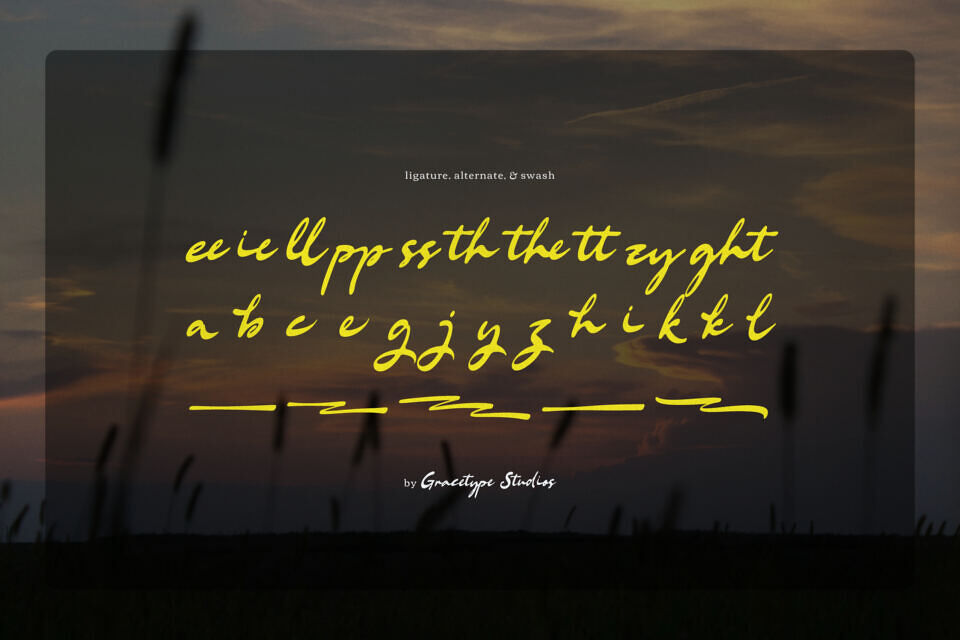 ligature, alternate, & swash
ee ie ll pp ss th the tt zy ght
a b c e g j y z h i k k l
by Gracetype Studios